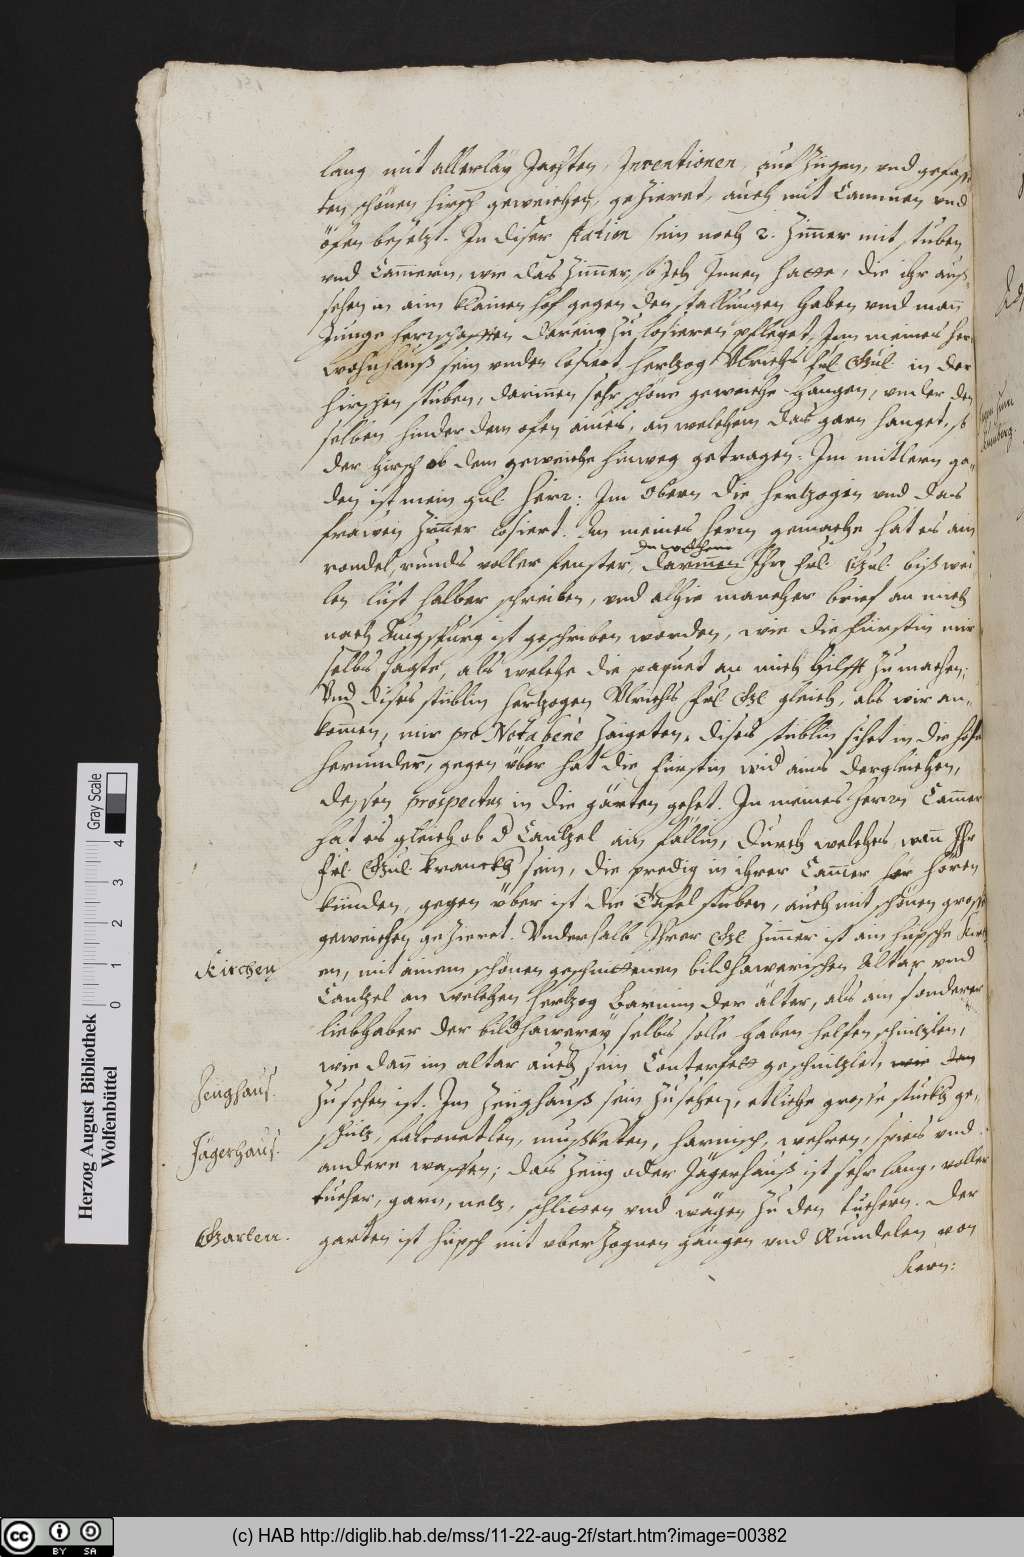 lang mit allerlaÿ Jagten, Inventionen, aufzügen, vnd gefass-
ten schönen hirsch geweichen, gezieret, auch mit Caminen vnd
öfen besetzt. In diser station sein noch 2. Zimer mit stuben
vnd Camern, wie das Zimer, so Ich Innen hatte, die ihr auß-
sehen in ain klainen hof gegen den stallungen haben vnd man
Junge herrschafften darein zu losieren pfleget. Inn meines her
wohnhauß sein vnden losiert hertzog Vlrichs frl. Gnl. in der
hirschen stuben, darinen sehr schöne geweiche hangen, vnder den
selben hinder dem ofen aines, an welchem das garn hanget, so
der hirsch ob dem geweiche hinweg getragen: Im mitlern ga-
den ist mein gnl. herr: Im Obern die hertzogin vnd das
frawen Zimer losiert. In meines herrn gemache hat es ain
rondel, runds voller fenster,
In welchem
darinen Ihr frl. Gnl. biß wei
len lust halber schreiben, vnd alhie mancher brief an mich
nach Augspurg ist geschriben worden, wie die Fürstin mir
selbs sagte, als welche die paquet an mich hilfft zu machen:
Vnd dises stüblin hertzogen Vlrichs frl. Gl. gleich, als wir an-
komen, mir pro Nota bene Zaigeten. dises stüblin sihet in die höhe
herunder, gegen über hat die Fürstin wid ains dergleichen,
dessen prospectus in die gärten gehet. In meines herrn Camer
hat es gleich ob d Cantzel ain fällin, durch welches, wan Ihr
frl. Gnl. kranckh sein, die predig in ihrer Camer hör hören
kinden, gegen über ist die Tafel stuben, auch mit schönen grosse
geweichen gezieret. Vnderhalb Ihrer Gl. Zimer ist ain hüpsche Kirch
Kirchen
en, mit ainem schönen geschnittenen bildhawerischen Altar vnd
Cantzel an welchen hertzog Barnim der älter, als ain sonderer
liebhaber der bildhawereÿ selbs solle haben helfen schnitzlen,
wie dan im altar auch sein Conterfett geschnitzlet, wie dan
Zeughaus.
zusehen ist. Im Zeughauß sein zusehen, etliche grosse stuckh ge-
schütz, falconetlen, mußketen, harnisch, wehren, spies vnd
Jägerhaus.
andere waffen; das Zeüg oder Jägerhauß ist sehr lang, voller
tücher, garn, netz, schlitten vnd wägen zu den tüchern. Der
Garten.
garten ist hüpsch mit vberzognen gängen vnd Rundelen von
Herzog August Bibliothek
Wolfenbüttel
Gray Scale
0 1 2 3 4
(c) HAB http://diglib.hab.de/mss/11-22-aug-2f/start.htm?image=00382